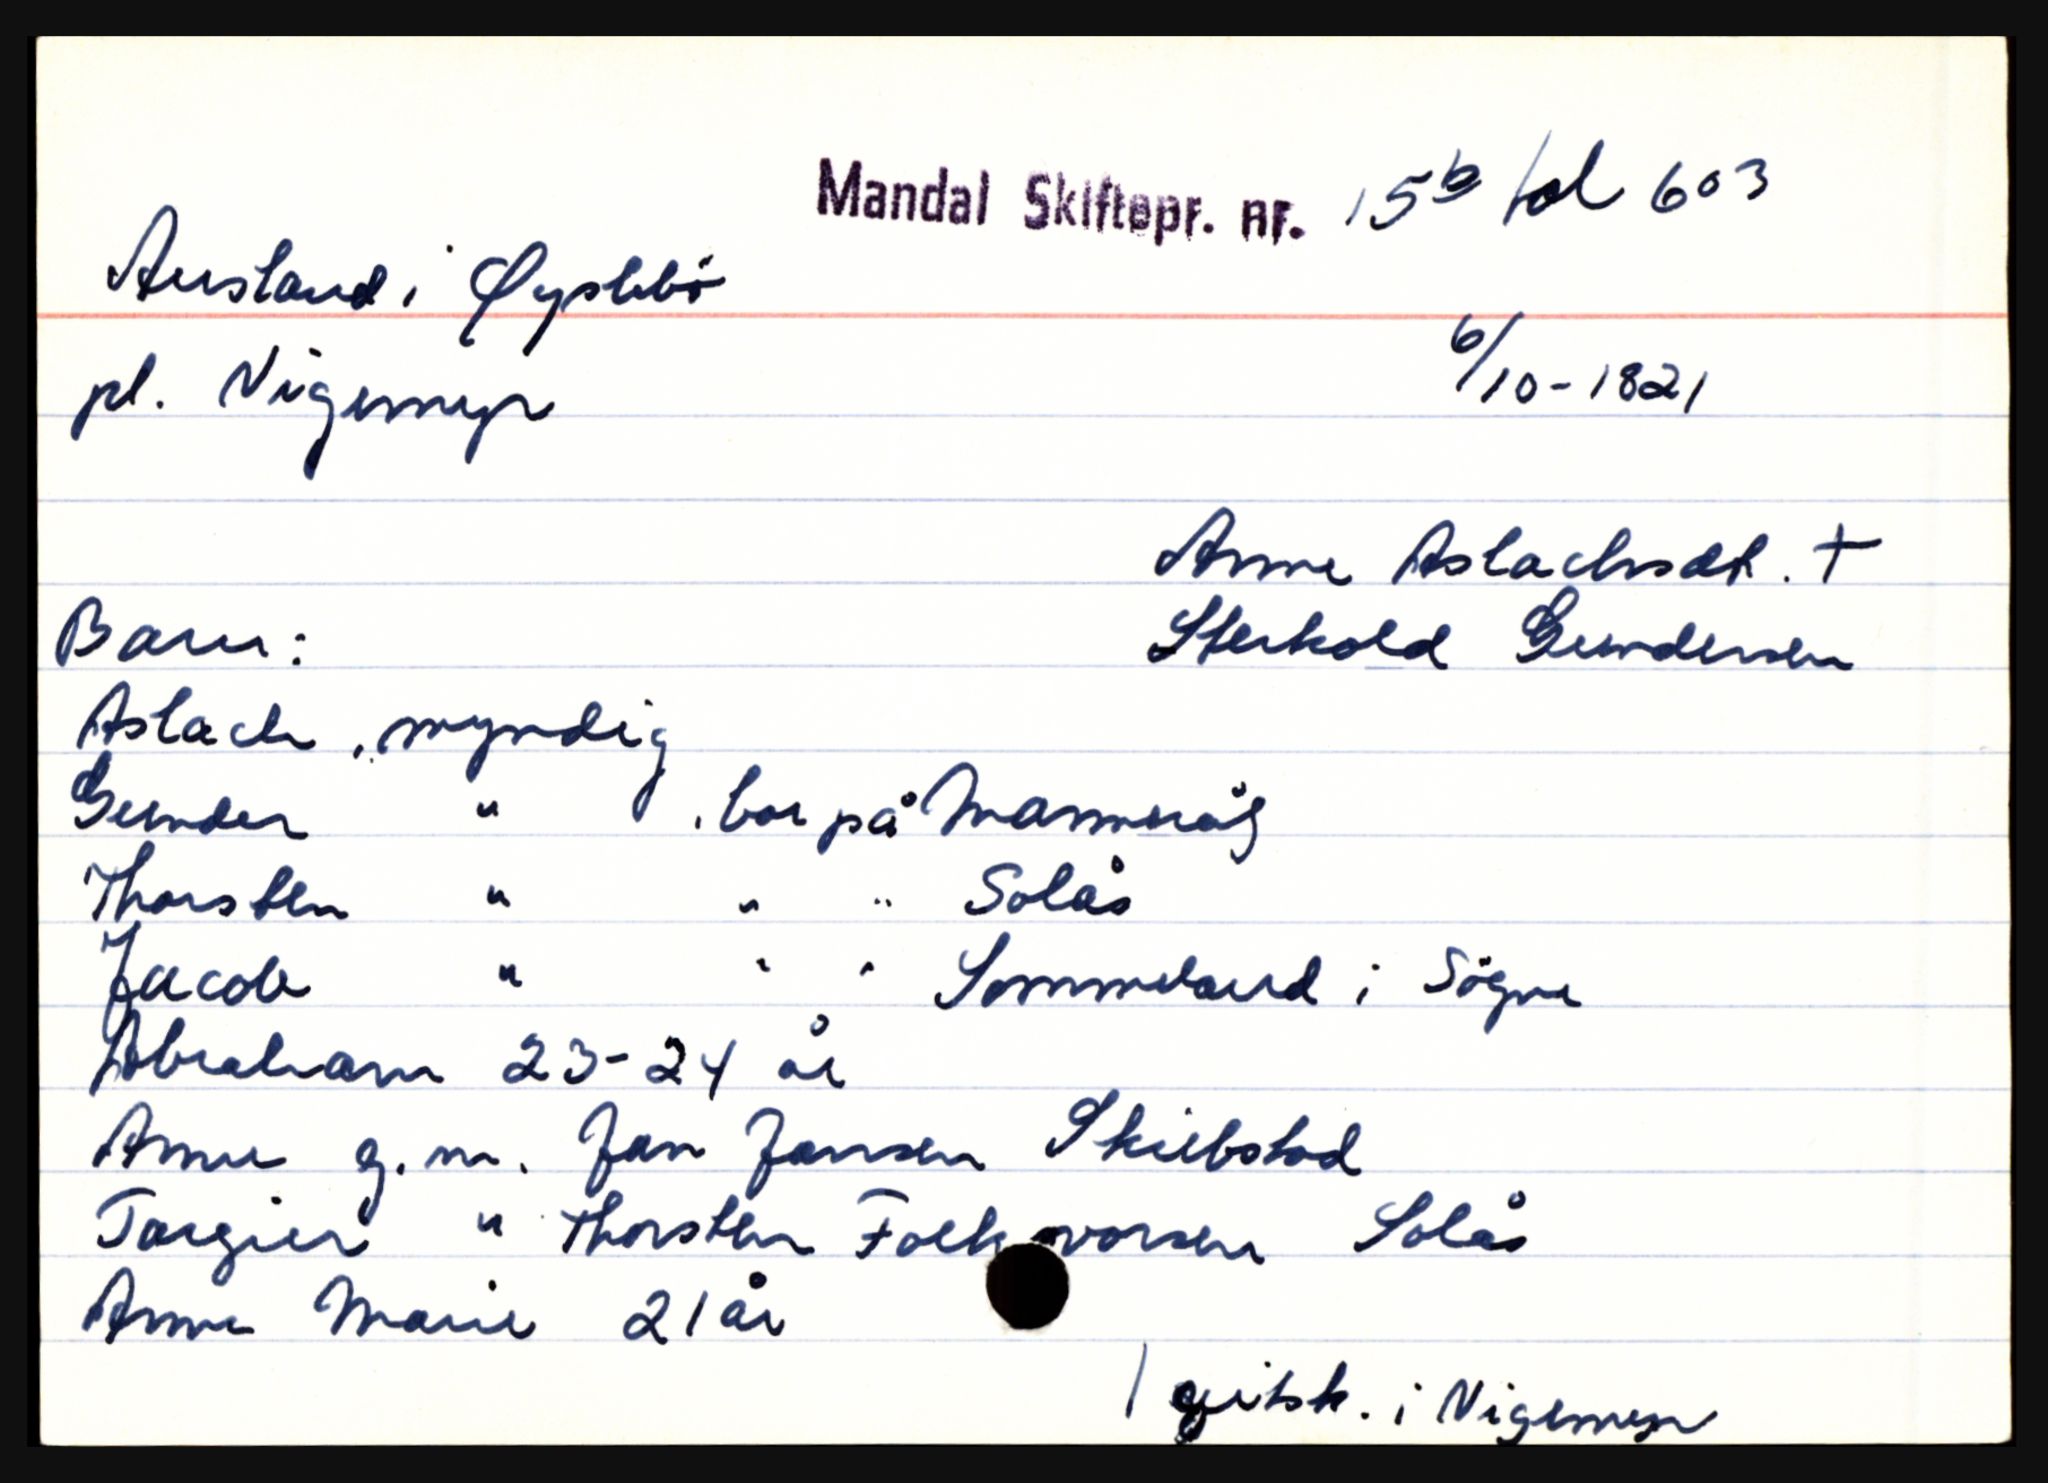 Mandal Skiftepr. nr. 15b fol 603
Ausland i Øyslebö
pl. Nigemyr 6/10-1821
Anne Aslachsdt. +
Barn: Sterkold Gundersen
Aslach, myndig
Gunder " , bor på
Thorsten " " " Solås
Jacob " " " Sommeland i Sögne
Abraham 23-24 år
Anne g.m. Jan Jansen Skiebstad
Targier " Thorsten Folkvorsen Solås
Anne Marie 21 år
1 geitsk. i Nigemyr